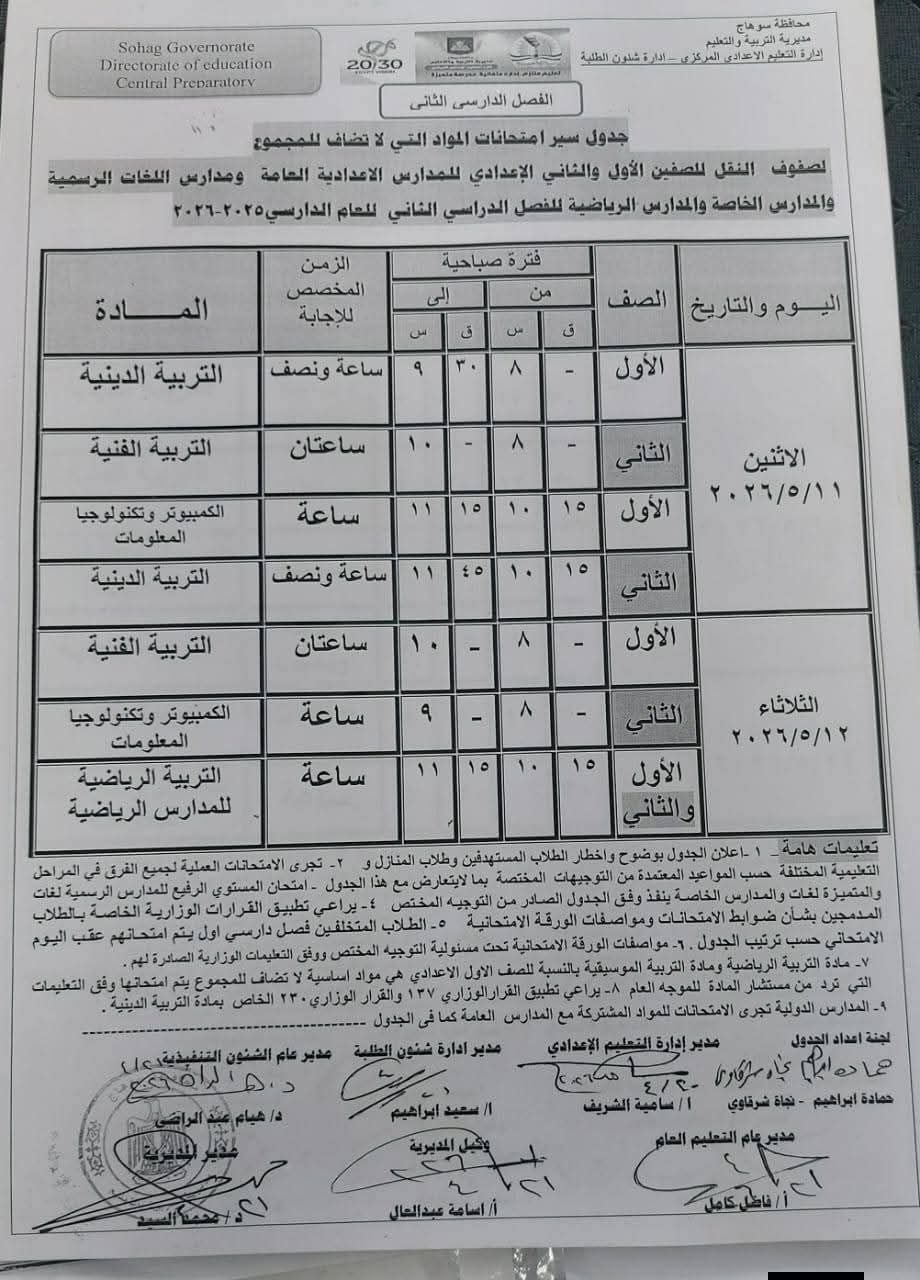 محافظة سوهاج
مديرية التربية والتعليم
إدارة التعليم الاعدادي المركزي – ادارة شئون الطلبة
Sohag Governorate
Directorate of education
Central Preparatory
20/30
الفصل الدارسى الثانى
جدول سير امتحانات المواد التي لا تضاف للمجموع
لصفوف النقل للصفين الأول والثاني الإعدادي للمدارس الاعدادية العامة ومدارس اللغات الرسمية
والمدارس الخاصة والمدارس الرياضية للفصل الدراسي الثاني للعام الدارسي٢٠٢٥-٢٠٢٦
اليوم والتاريخ الصف فترة صباحية الزمن المخصص للإجابة المادة
من إلى
ق س ق س
الاثنين ٢٠٢٦/٥/١١
الأول - ٨ ٣٠ ٩ ساعة ونصف التربية الدينية
الثاني - ٨ - ١٠ ساعتان التربية الفنية
الأول ١٥ ١٠ ١٥ ١١ ساعة الكمبيوتر وتكنولوجيا المعلومات
الثاني ١٥ ١٠ ٤٥ ١١ ساعة ونصف التربية الدينية
الثلاثاء ٢٠٢٦/٥/١٢
الأول - ٨ - ١٠ ساعتان التربية الفنية
الثاني - ٨ - ٩ ساعة الكمبيوتر وتكنولوجيا المعلومات
الأول والثاني ١٥ ١٠ ١٥ ١١ ساعة التربية الرياضية للمدارس الرياضية
تعليمات هامة – ١ -اعلان الجدول بوضوح واخطار الطلاب المستهدفين وطلاب المنازل و ٢- تجرى الامتحانات العملية لجميع الفرق في المراحل
التعليمية المختلفة حسب المواعيد المعتمدة من التوجيهات المختصة بما لايتعارض مع هذا الجدول - امتحان المستوي الرفيع للمدارس الرسمية لغات
والمتميزة لغات والمدارس الخاصة ينفذ وفق الجدول الصادر من التوجيه المختص ٤- يراعي تطبيق القرارات الوزارية الخاصة بالطلاب
المدمجين بشأن ضوابط الامتحانات ومواصفات الورقة الامتحانية ٥- الطلاب المتخلفين فصل دارسي اول يتم امتحانهم عقب اليوم
الامتحاني حسب ترتيب الجدول . ٦- مواصفات الورقة الامتحانية تحت مسئولية التوجيه المختص ووفق التعليمات الوزارية الصادرة لهم .
٧- مادة التربية الرياضية ومادة التربية الموسيقية بالنسبة للصف الاول الاعدادي هي مواد اساسية لا تضاف للمجموع يتم امتحانها وفق التعليمات
التي ترد من مستشار المادة للموجه العام ٨- يراعي تطبيق القرارالوزاري ١٣٧ والقرار الوزاري٢٣٠ الخاص بمادة التربية الدينية .
٩- المدارس الدولية تجرى الامتحانات للمواد المشتركة مع المدارس العامة كما فى الجدول
لجنة اعداد الجدول مدير إدارة التعليم الإعدادي مدير ادارة شئون الطلبة مدير عام الشئون التنفيذية
حمادة ابراهيم - نجاة شرقاوي أ/ سامية الشريف ا/ سعيد ابراهيم د/ هيام عبد الراضي
مدير عام التعليم العام وكيل المديرية مدير المديرية
أ/ فاضل كامل أ/ اسامة عبدالعال د/ محمد السيد